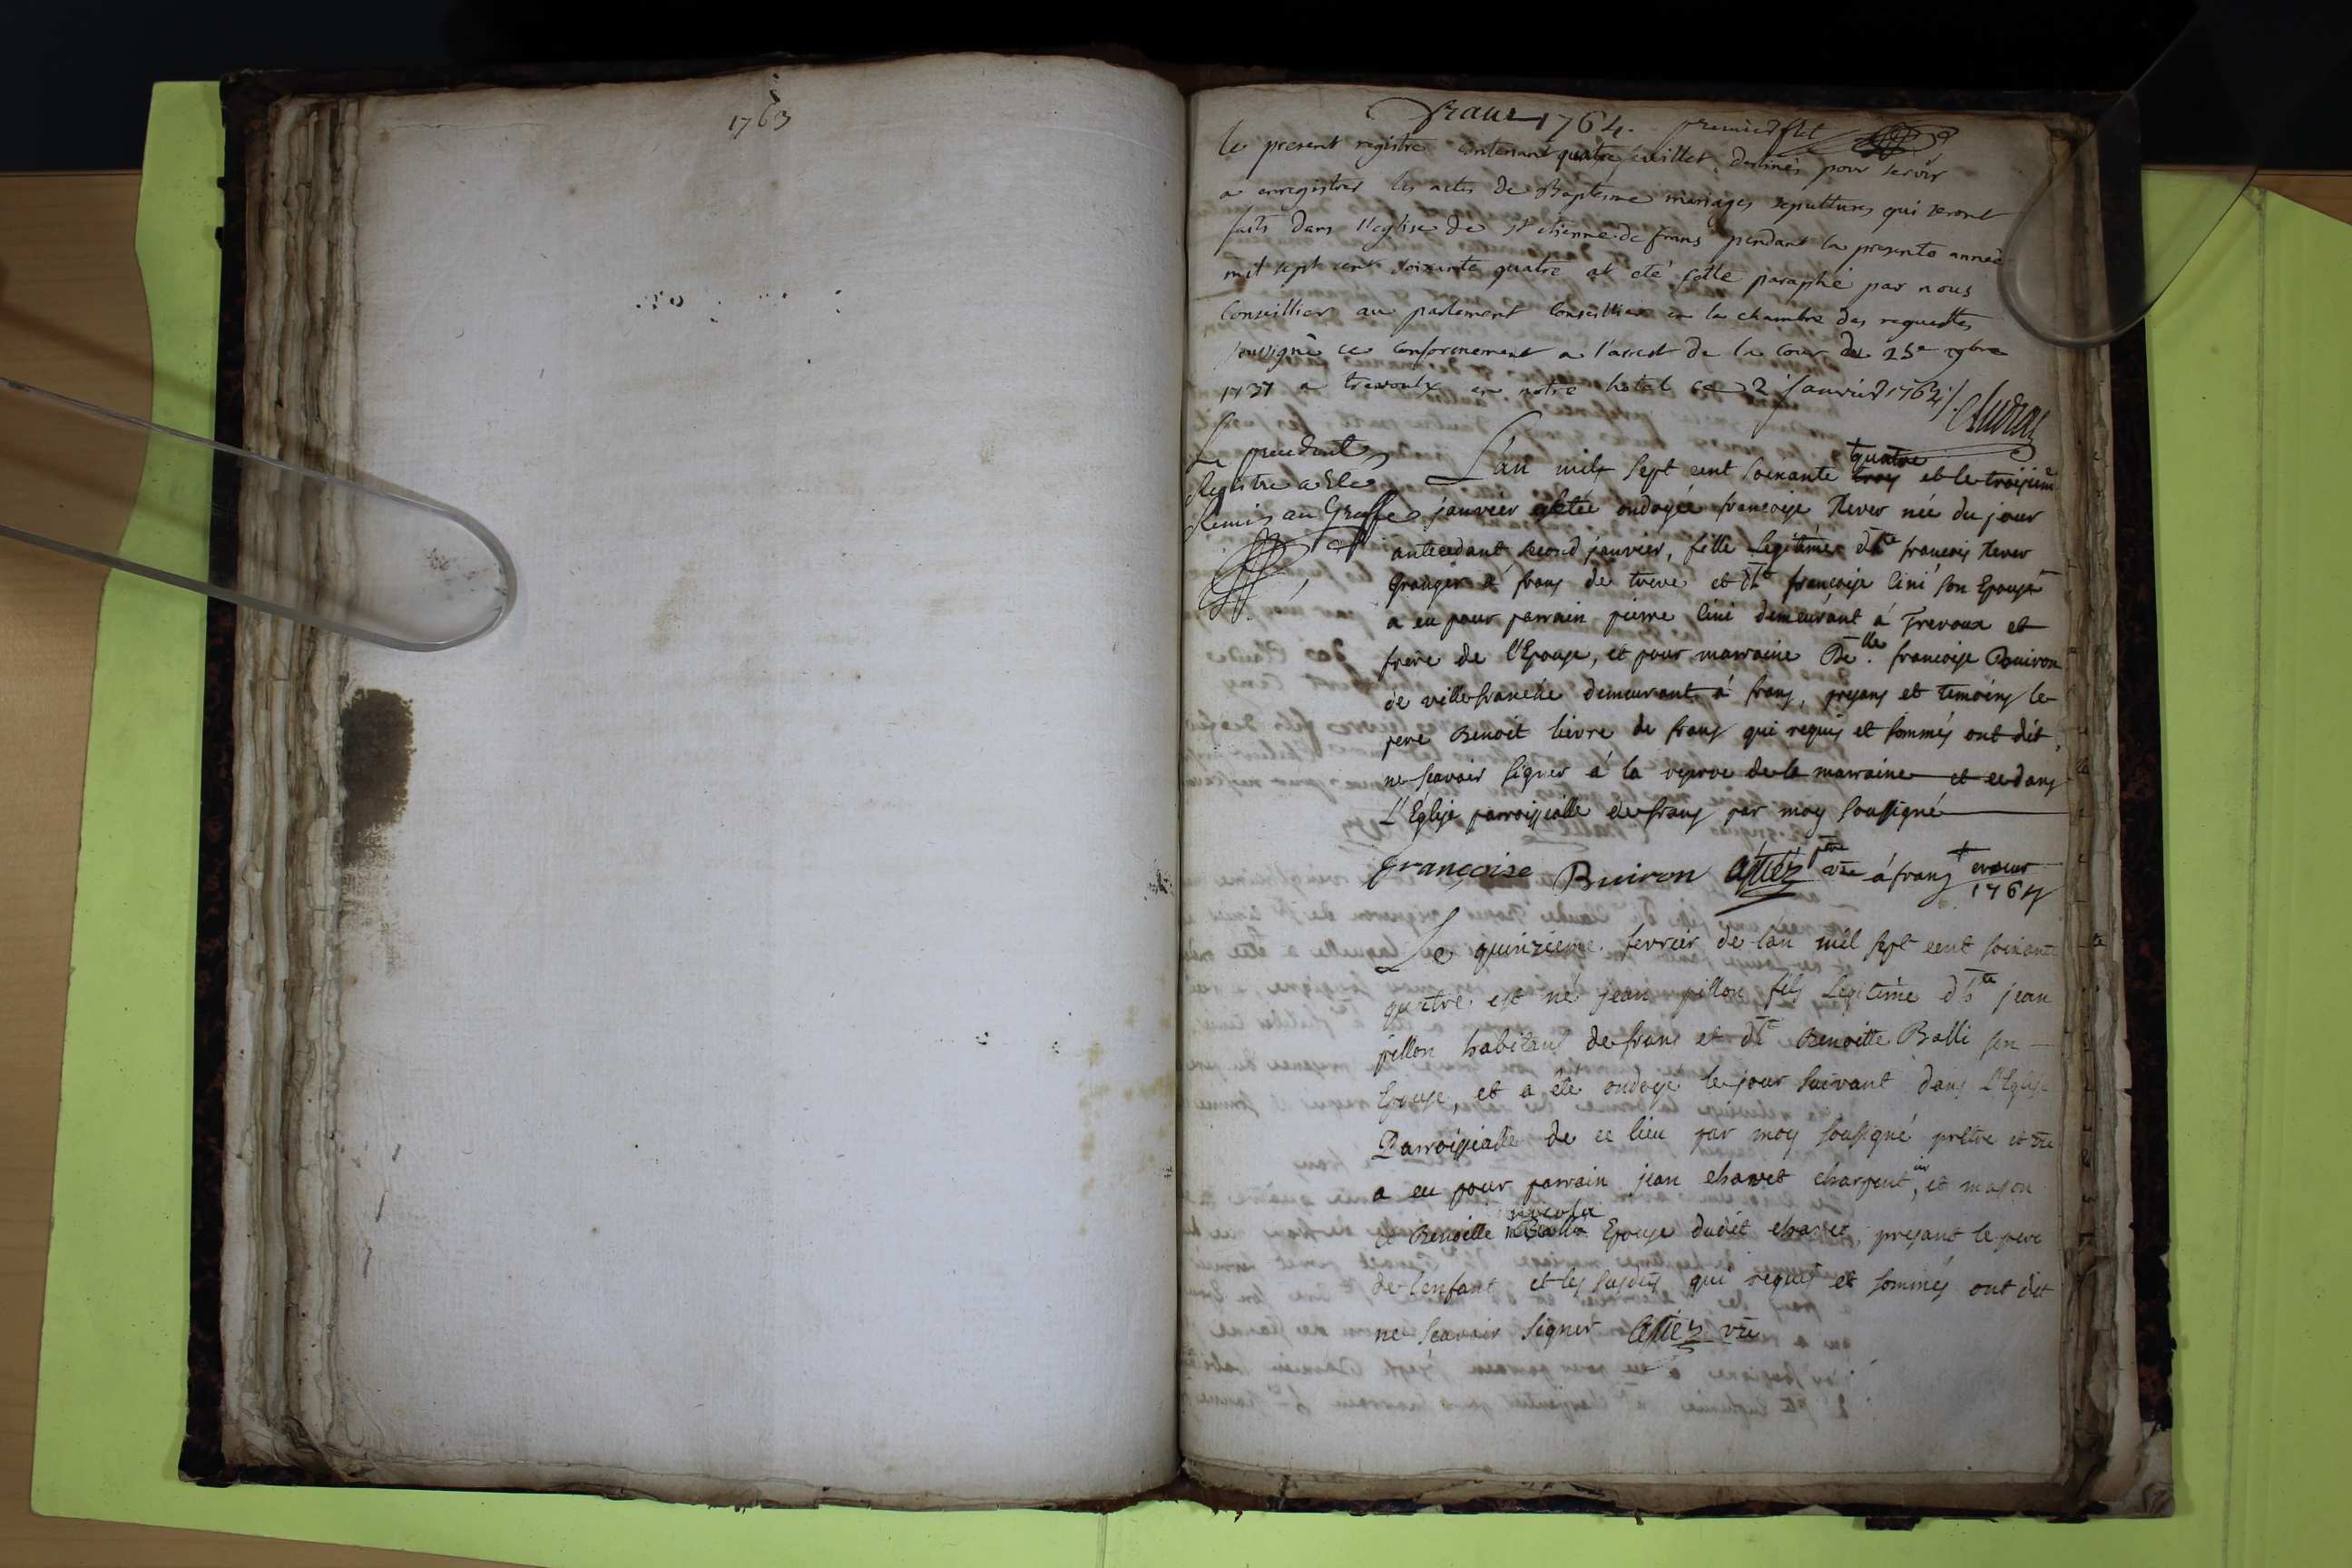 1763
frans 1764. premier flet
le present registre contenant quatre feuillet destinés pour servir
a enregistrer les actes de Baptesme mariages sepultures qui seront
faits dans l'eglise de st etienne de frans pendant la presente année
mil sept cent soixante quatre at eté cotté paraphé par nous
Conseillier au parlement Conseillier en la chambre des requettes
soussigné ce conformement a l'arrest de la Cour du 9bre
1737 a trevoulx en notre hotel ce 2 janvier 1764
Le precedent
Registre a ete
Remis au Greffe
L'an mil sept cent soixante troy quatre et le troisieme
janvier a etée ondoyée françoise Rever née du jour
antecedant second janvier, fille Legitime françois Rever
Granger à frans de treve et françoise lini son Epouse
a eu pour parrain pierre lini demeurant á Trevoux et
frere de l'Epouse, et pour marraine De.lle françoise Buiron
de villefranche demeurant á frans, presans et temoins le
pere Benoit lievre de frans qui requis et sommés ont dit
ne scavoir signer á la reserve de la marraine et ce dans
L'Eglise parroissialle de frans par moy soussigné
françoise Buiron vre á frans
1764
Le quinzieme fevrier de l'an mil sept cent soixante
quatre est né jean pillon fils Legitime jean
pillon habitant de frans et Benoitte Balli son
Epouse, et a été ondoyé le jour suivant dans L'Eglise
Parroissialle de ce lieu par moy soussigné prêtre et vre
a eu pour parrain jean chavet charpent.ier et mason
et Benoitte Epouse dudit chavet, presant le pere
de l'enfant et les susdits qui requis et sommés ont dit
ne scavoir signer vre